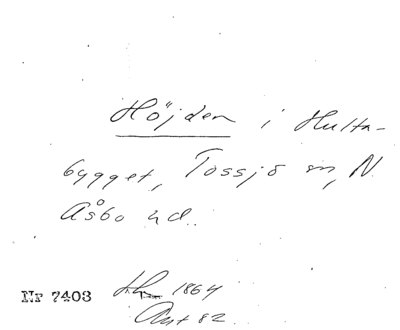 Höjden i Hulta-
bygget, Tossjö sn, N
Åsbo hd.
Nr 7403 1864
82